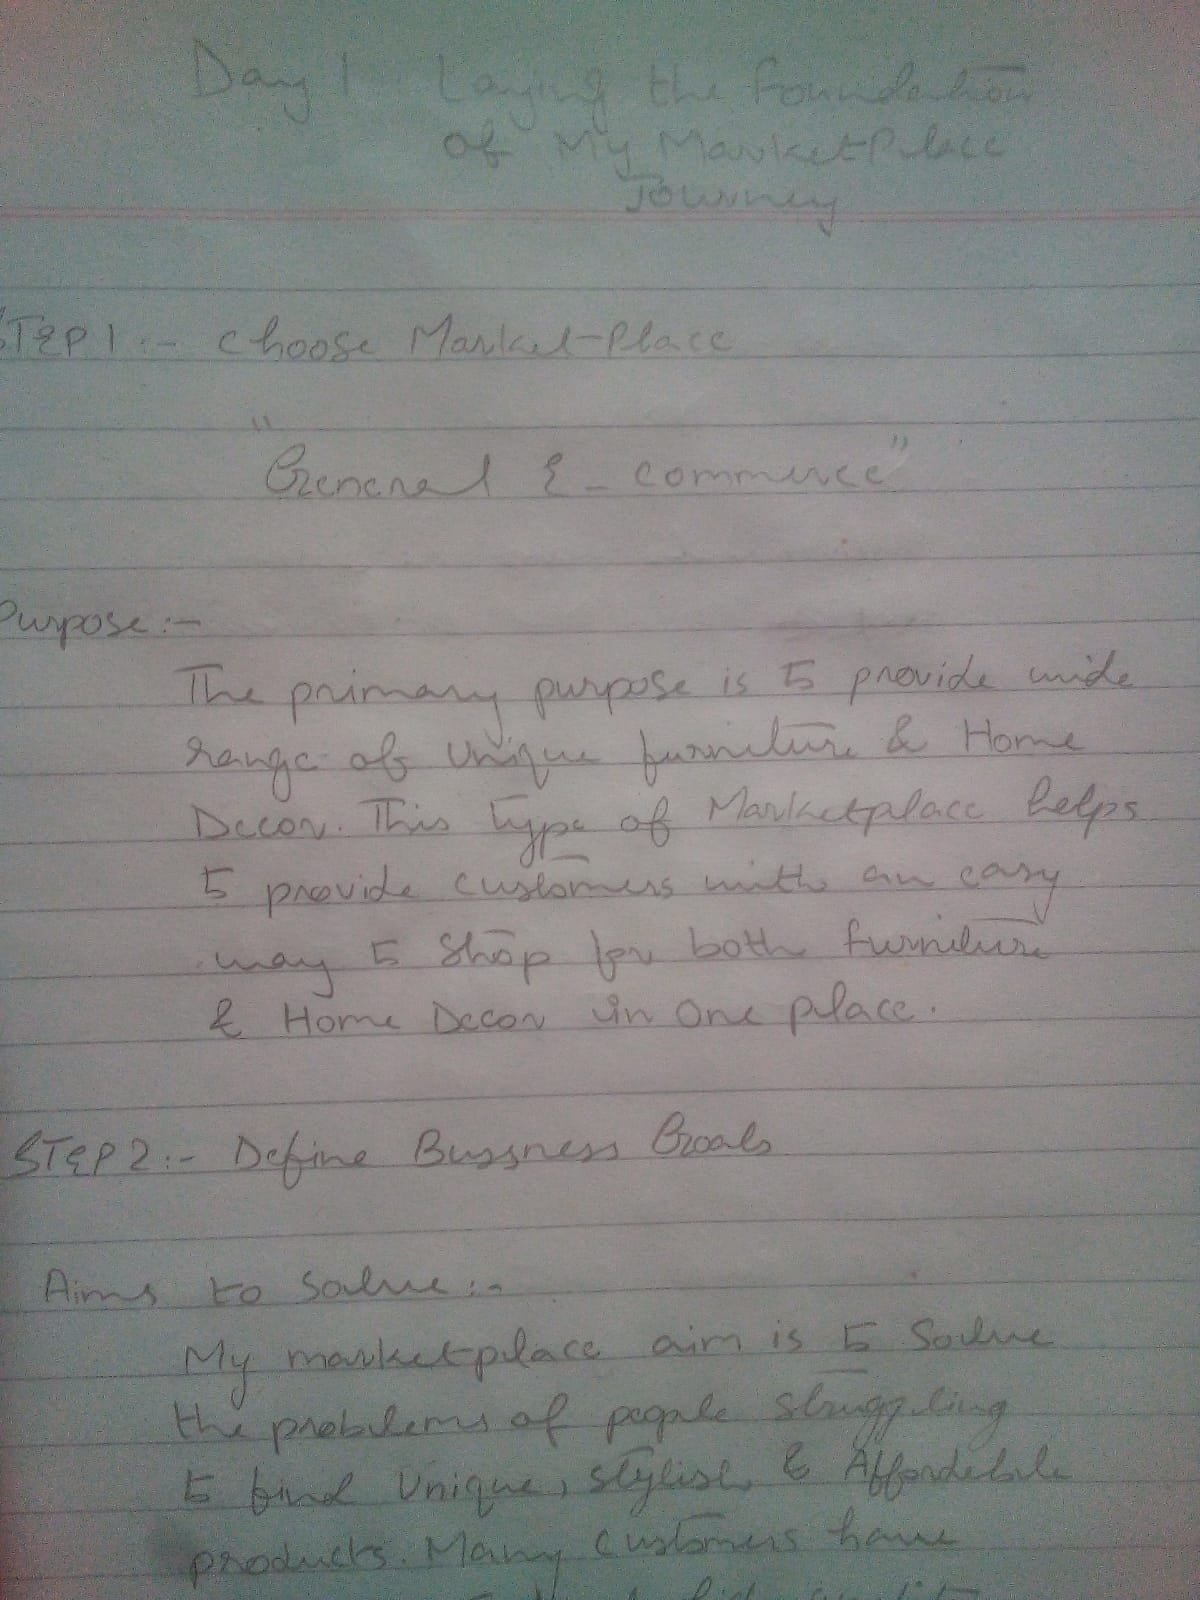 Day 1 Laying the foundation
of My MarketPlace
Journey
STEP 1 :- Choose Market-Place
"General E-commerce"
Purpose :-
The primary purpose is to provide wide
range of Unique furniture & Home
Decor. This type of Marketplace helps
to provide customers with an easy
way to Shop for both furniture
& Home Decor in One place.
STEP 2 :- Define Bussness Goals
Aims to Solve :-
My marketplace aim is to Solve
the problems of people struggling
to find Unique, stylish & Affordeble
products. Many customers have